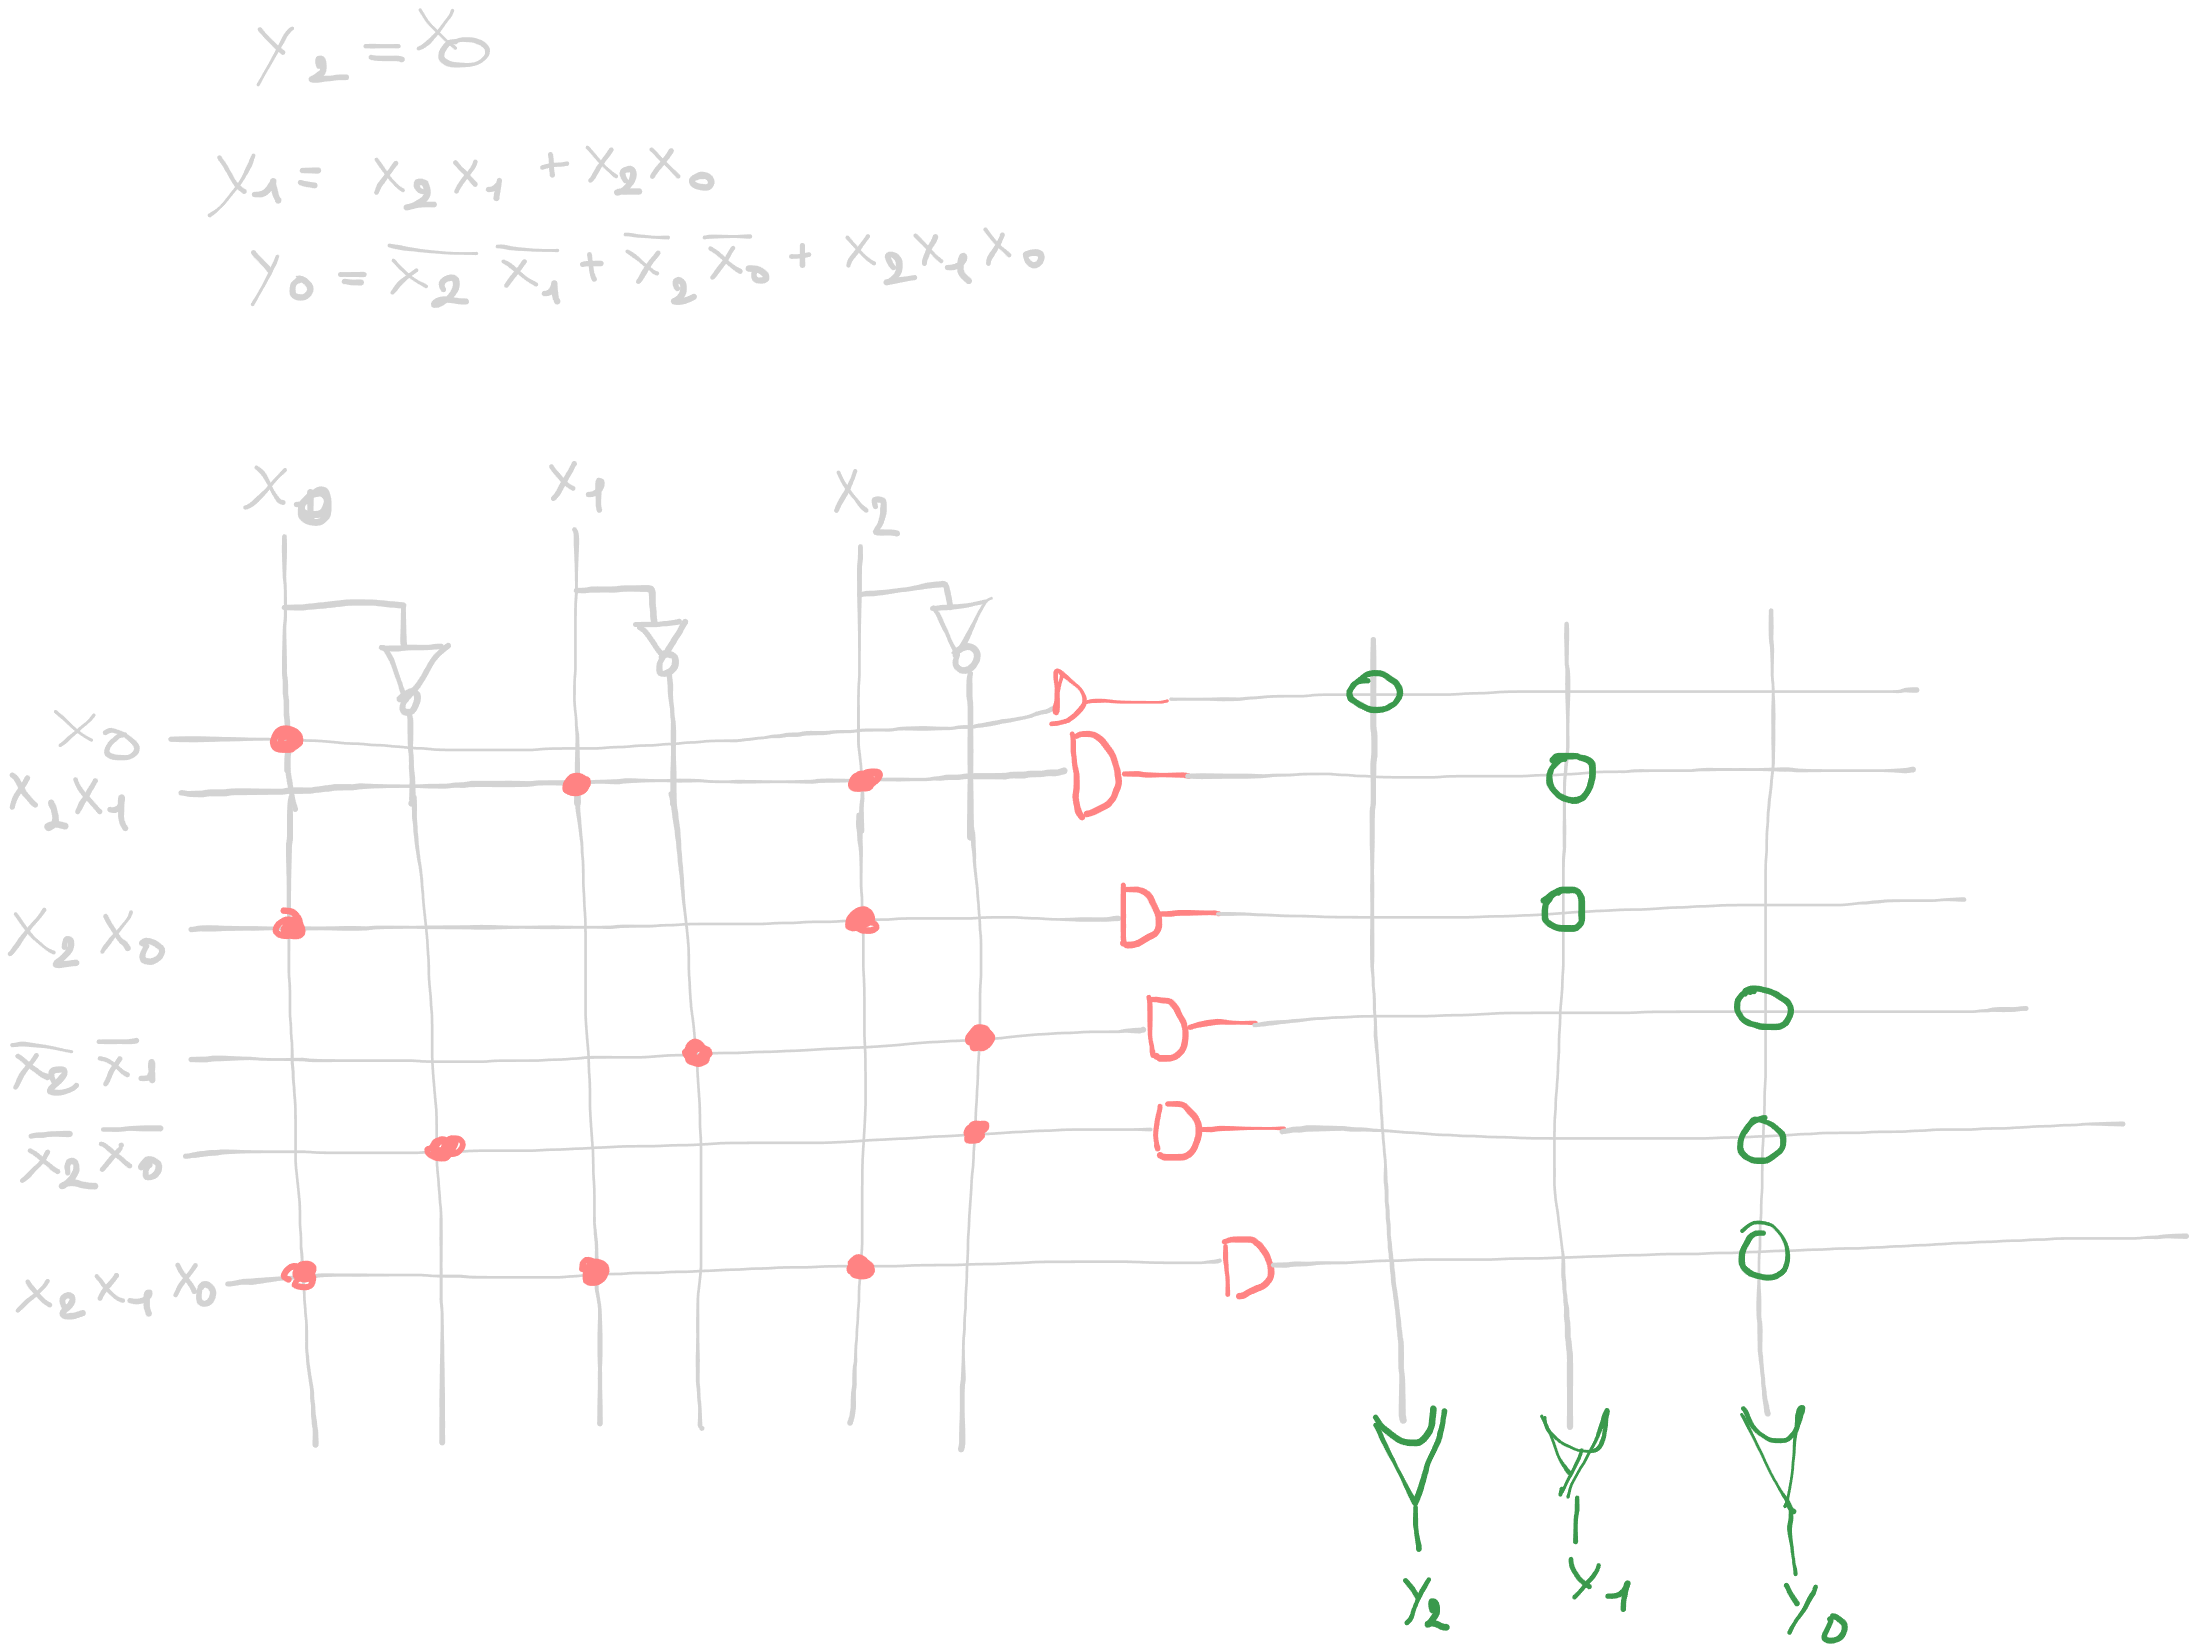 Y₂ = X₀
Y₁ = X₂ X₁ + X₂ X₀
Y₀ = X̅₂ X̅₁ + X̅₂ X̅₀ + X₂ X₁ X₀
X₀ X₁ X₂
X₀
X₂ X₁
X₂ X₀
X̅₂ X̅₁
X̅₂ X̅₀
X₂ X₁ X₀
Y₂ Y₁ Y₀